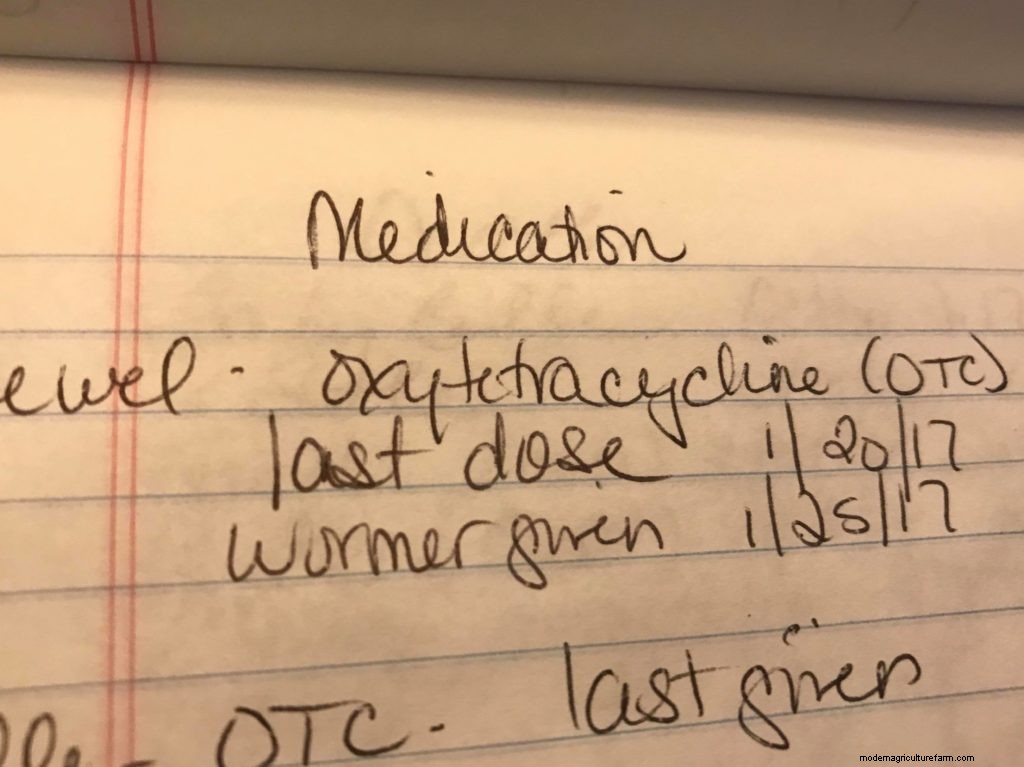 Medication
ewel - oxytetracycline (OTC)
last dose 1/20/17
wormer given 1/25/17
last given
- OTC -
modernagriculturefarm.com